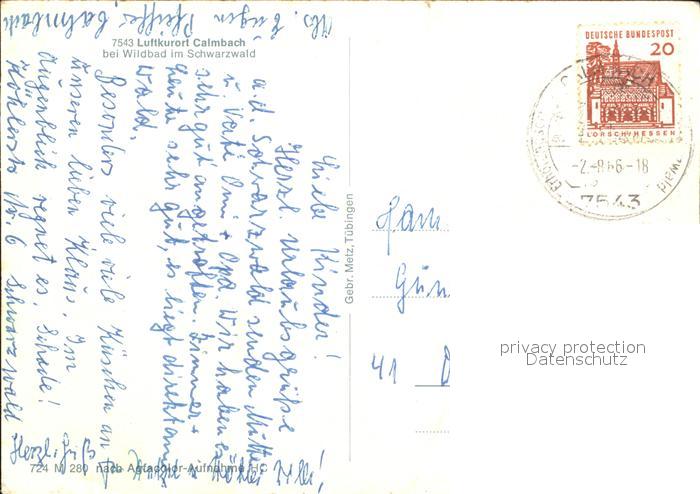 7543 Luftkurort Calmbach
bei Wildbad im Schwarzwald
Liebe Kinder!
Herzl. Urlaubsgrüße
a. d. Schwarzwald senden Mutti
u. Vati Omi + Opa. Wir haben es
sehr gut angetroffen. Zimmer +
Küche sehr gut, es liegt direkt am
Wald.
Besonders viele viele Küschen an
unseren lieben Klaus. Im
Augenblick regnet es. Schade!
Nr. 6 Schwarzwald
Eugen Pfeiffer, Calmbach
Herzl. Gruß
724 M 280 nach Agfacolor-Aufnahme HC
Gebr. Metz, Tübingen
DEUTSCHE BUNDESPOST
20
LORSCH/HESSEN
CALMBACH
-2.-8.66-18
7543
Fam
Gün
41
privacy protection
Datenschutz